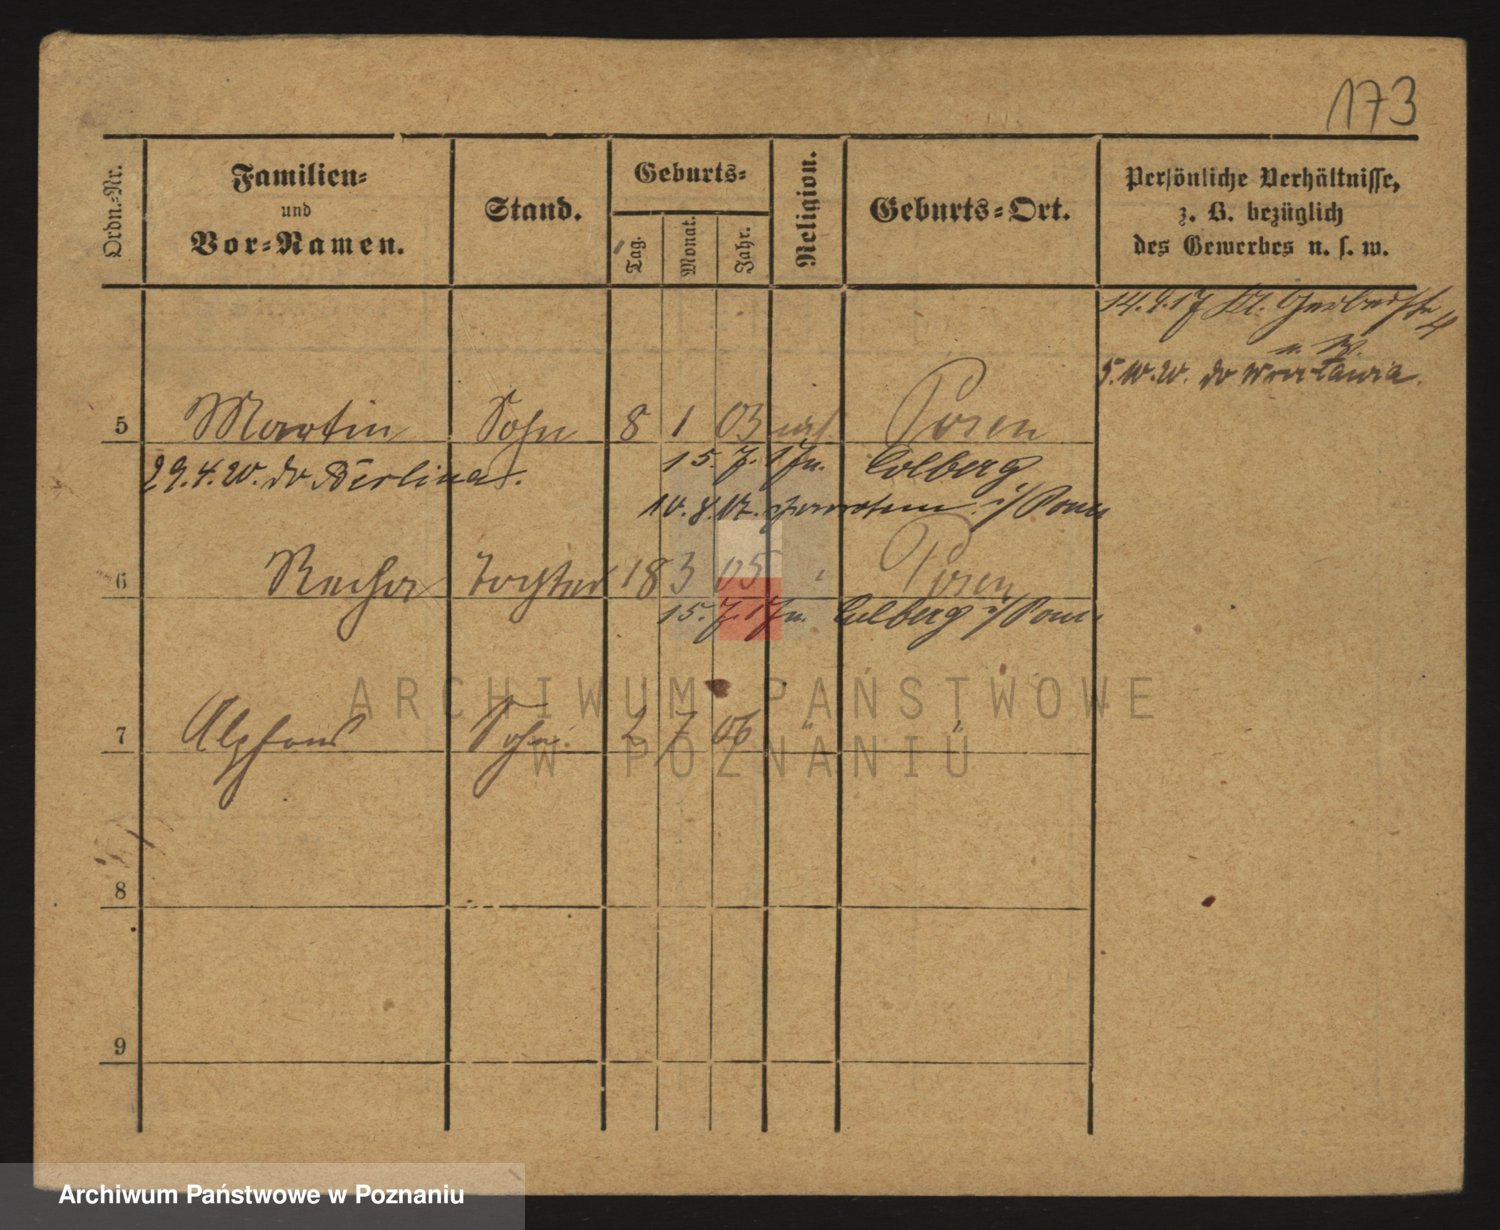 173
Ordn.-Nr.
Familien-
und
Vor-Namen.
Stand.
Geburts-
Tag.
Monat.
Jahr.
Religion.
Geburts-Ort.
Persönliche Verhältnisse,
z. B. bezüglich
des Gewerbes u. s. w.
14.9.17 Kl. Gerberstr 4
5.10.20. do Wrocławia.
5 Martin Sohn 8 1 03 Posen
29.4.20. do Berlina. 15.7.17 n. Colberg
10.8.17. i/Pom
6 Recha Tochter 18 3 05 Posen
15.7.17 n. Colberg i/Pom.
7 Alphons Sohn 2 7 06 " "
8
9
ARCHIWUM PAŃSTWOWE
W POZNANIU
Archiwum Państwowe w Poznaniu